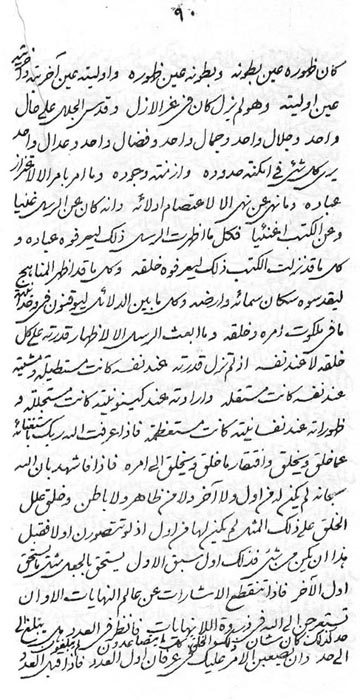 ٩٠
كان ظهوره عين بطونه وبطونه عين ظهوره واوليته عين آخريته وآخريته
عين اوليته وهو لم يزل كان في عز الازل وقدس الجلال على حال
واحد وجلال واحد وجمال واحد وفضال واحد وعدال واحد
يرى كل شئ في امكنة حدوده وازمنة وجوده وما امر بامر الا لاحراز
عباده وما نهى عن نهى الا لاعتصام ادلائه وانه كان عن الرسل غنيا
وعن الكتب اغتنيا فكل ما اظهرت الرسل ذلك ليعرفوه عباده و
كل ما قد نزلت الكتب ذلك ليعرفوه خلقه وكل ما قد اظهر المناهج
ليقدسوه سكان سمائه وارضه وكل ما بين الدلائل ليوقنون
ما في ملكوت امره وخلقه وما ابعث الرسل الا لاظهار قدرته على كل
خلقه لا عند نفسه اذ لم تزل قدرته عند نفسه كانت مستطيلة ومشيته
عند نفسه كانت مستقلة وارادته عند كينونيته كانت و
ظهوراته عند نفسانيته كانت مستعظمة فاذا عرفت الله ربك
عما خلق ويخلق وافتقار ما خلق ويخلق الى امره فاذا فاشهد بان الله
سبحانه لم يكن له من اول ولا آخر ولا من ظاهر ولا باطن وخلق علل
الخلق على ذلك المثل لم يكن لها من اول اذ لو تتصورن اولا فقبل
هذا ان يكن من شئ فذلك اول سبق الاول يستحق بالجعل شئ ما يستحق
اول الآخر فاذا تنقطع الاشارات عن عالم النهايات الا وان
الى الله في ذروة اللانهايات فانظر في العدد
حد كذلك كان شأن الخلق
الى حد وان يصعبن الامر عليك في عرفان اول العدد فاذا قبل العدد